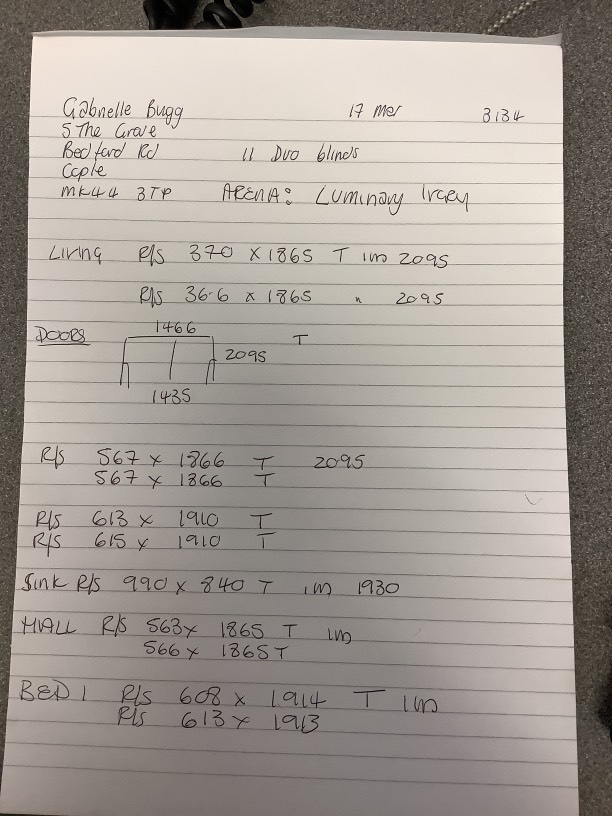 Gabrielle Bugg 17 Mar 3134
5 The Grove
Bedford Rd 11 Duo blinds
Cople
MK44 3TP ARENA: Luminary
Living R/S 370 x 1865 T im 2095
R/S 366 x 1865 " 2095
DOORS 1466 T
2095
1435
R/S 567 x 1866 T 2095
567 x 1866 T
R/S 613 x 1910 T
R/S 615 x 1910 T
Sink R/S 990 x 840 T im 1930
HALL R/S 563 x 1865 T im
566 x 1865 T
BED 1 R/S 608 x 1914 T im
R/S 613 x 1913